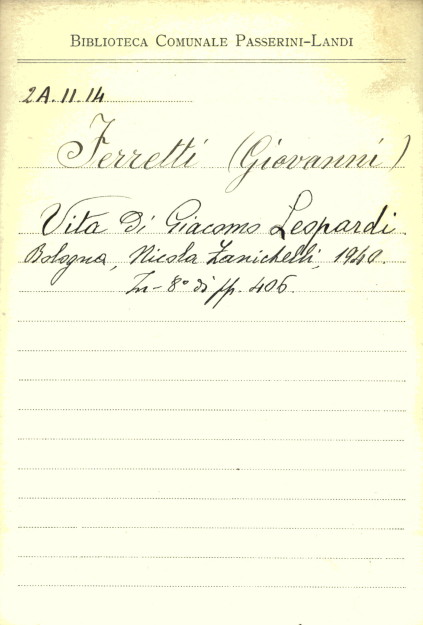 BIBLIOTECA COMUNALE PASSERINI-LANDI
2A.11.14
Ferretti (Giovanni)
Vita di Giacomo Leopardi.
Bologna, Nicola Zanichelli, 1940.
In-8° di pp. 406.